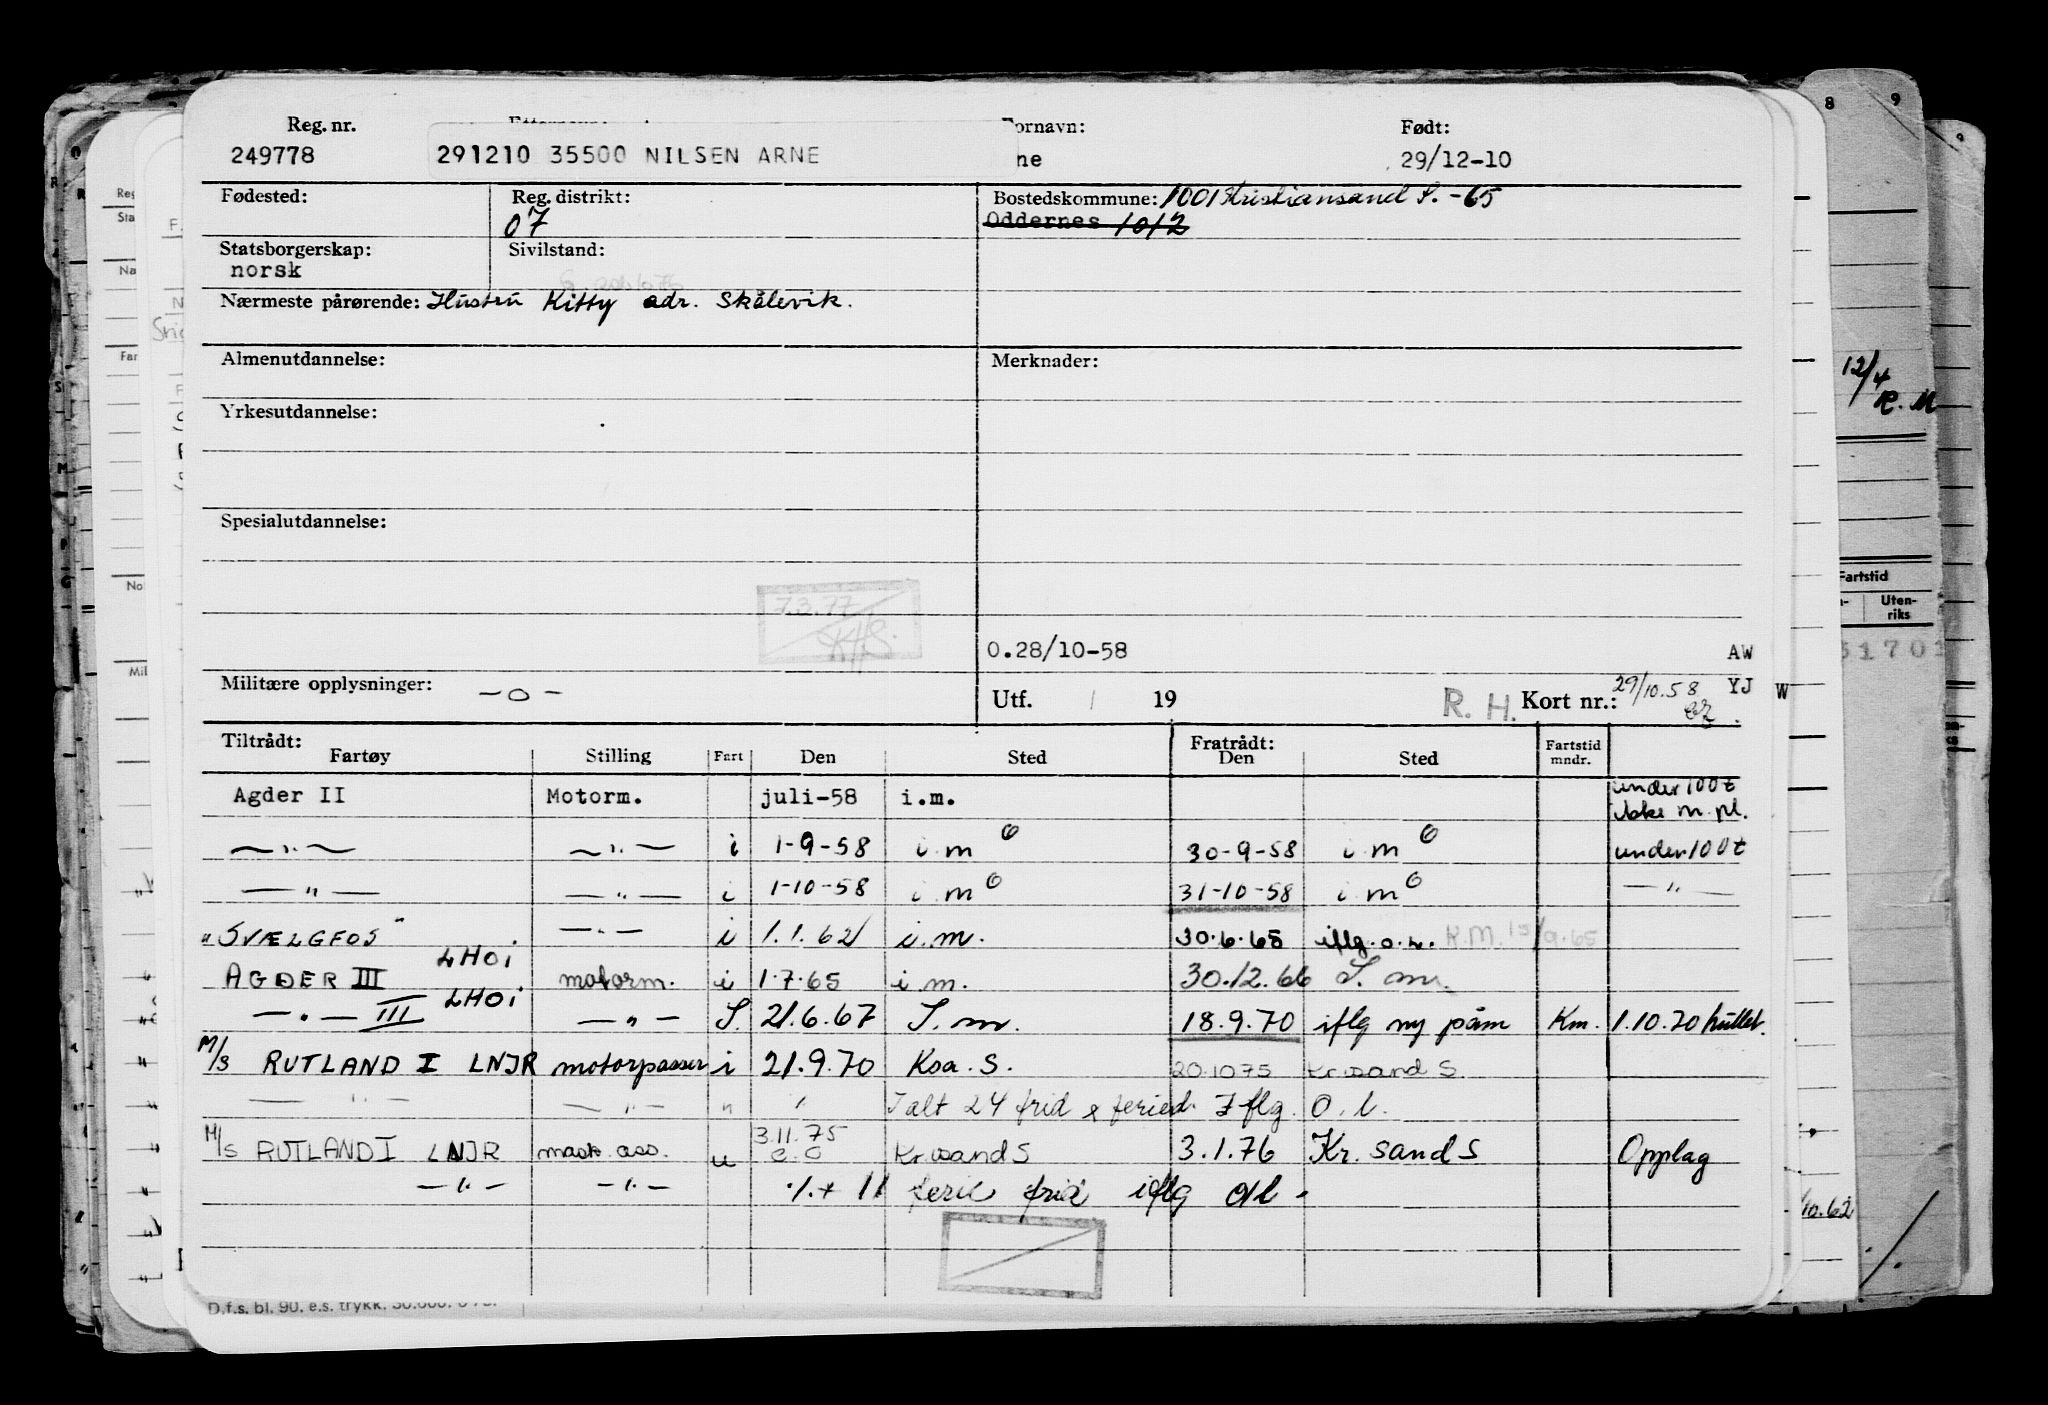 Reg. nr. Fornavn: Født:
249778 291210 35500 NILSEN ARNE ne 29/12-10
Fødested: Reg. distrikt: Bostedskommune: 1001 Kristiansand S. -65
07 Oddernes 1012
Statsborgerskap: Sivilstand:
norsk
Nærmeste pårørende: Hustru Kitty adr. Skålevik.
Almenutdannelse: Merknader:
Yrkesutdannelse:
Spesialutdannelse:
7.3.77
0.28/10-58 AW
Militære opplysninger: -o- Utf. 19 R. H. Kort nr.: 29/10.58 YJ W
Tiltrådt: Fratrådt:
Fartøy Stilling Fart Den Sted Den Sted Fartstid mndr.
Agder II Motorm. juli-58 i.m. under 100t ikke m. pl.
—"— —"— i 1-9-58 i.m 30-9-58 i.m under 100t
—"— —"— i 1-10-58 i.m 31-10-58 i.m —"—
"SVÆLGFOS" —"— i 1.1.62 i.m. 30.6.65 iflg. o.l. R.M. 15/9.65
AGDER III LHOI motorm. i 1.7.65 i.m. 30.12.66 S.m.
—"— III LHOI —"— S. 21.6.67 S.m. 18.9.70 iflg ny påm Km. 1.10.70 hullet.
M/S RUTLAND I LNJR motorpasser i 21.9.70 Ksa. S. 20.10 75 Kr.sand S.
—"— —"— " I alt 24 frid & feried. Iflg. O.l.
M/S RUTLAND I LNJR mask. ass. u 3.11.75 Kr.sand S 3.1.76 Kr. sand S Opplag
—"— —"— + 11 ferie frid iflg Ol.
D.f.s. bl. 90. e.s. trykk.
8 9
12/4
R. M
Fartstid
Uten-
riks
10.62